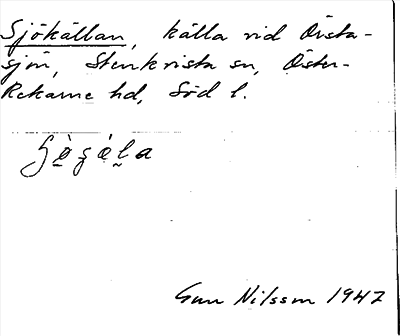 Sjökällan, källa vid Övsta-
sjön, Stenkvista sn, Öster-
Rekarne hd, Söd l.
Gun Nilsson 1947